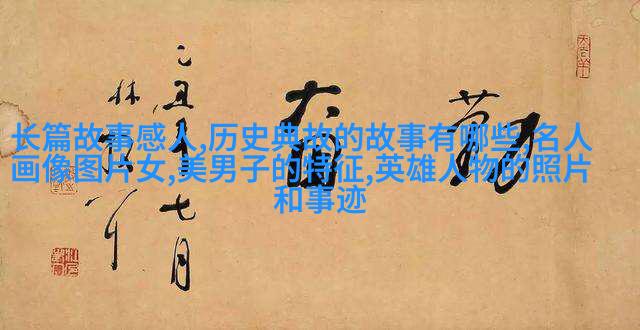 勤奋
乙丑年七月
林散耳
长篇故事感人,历史典故的故事有哪些,名人
画像图片女,美男子的特征,英雄人物的照片
和事迹